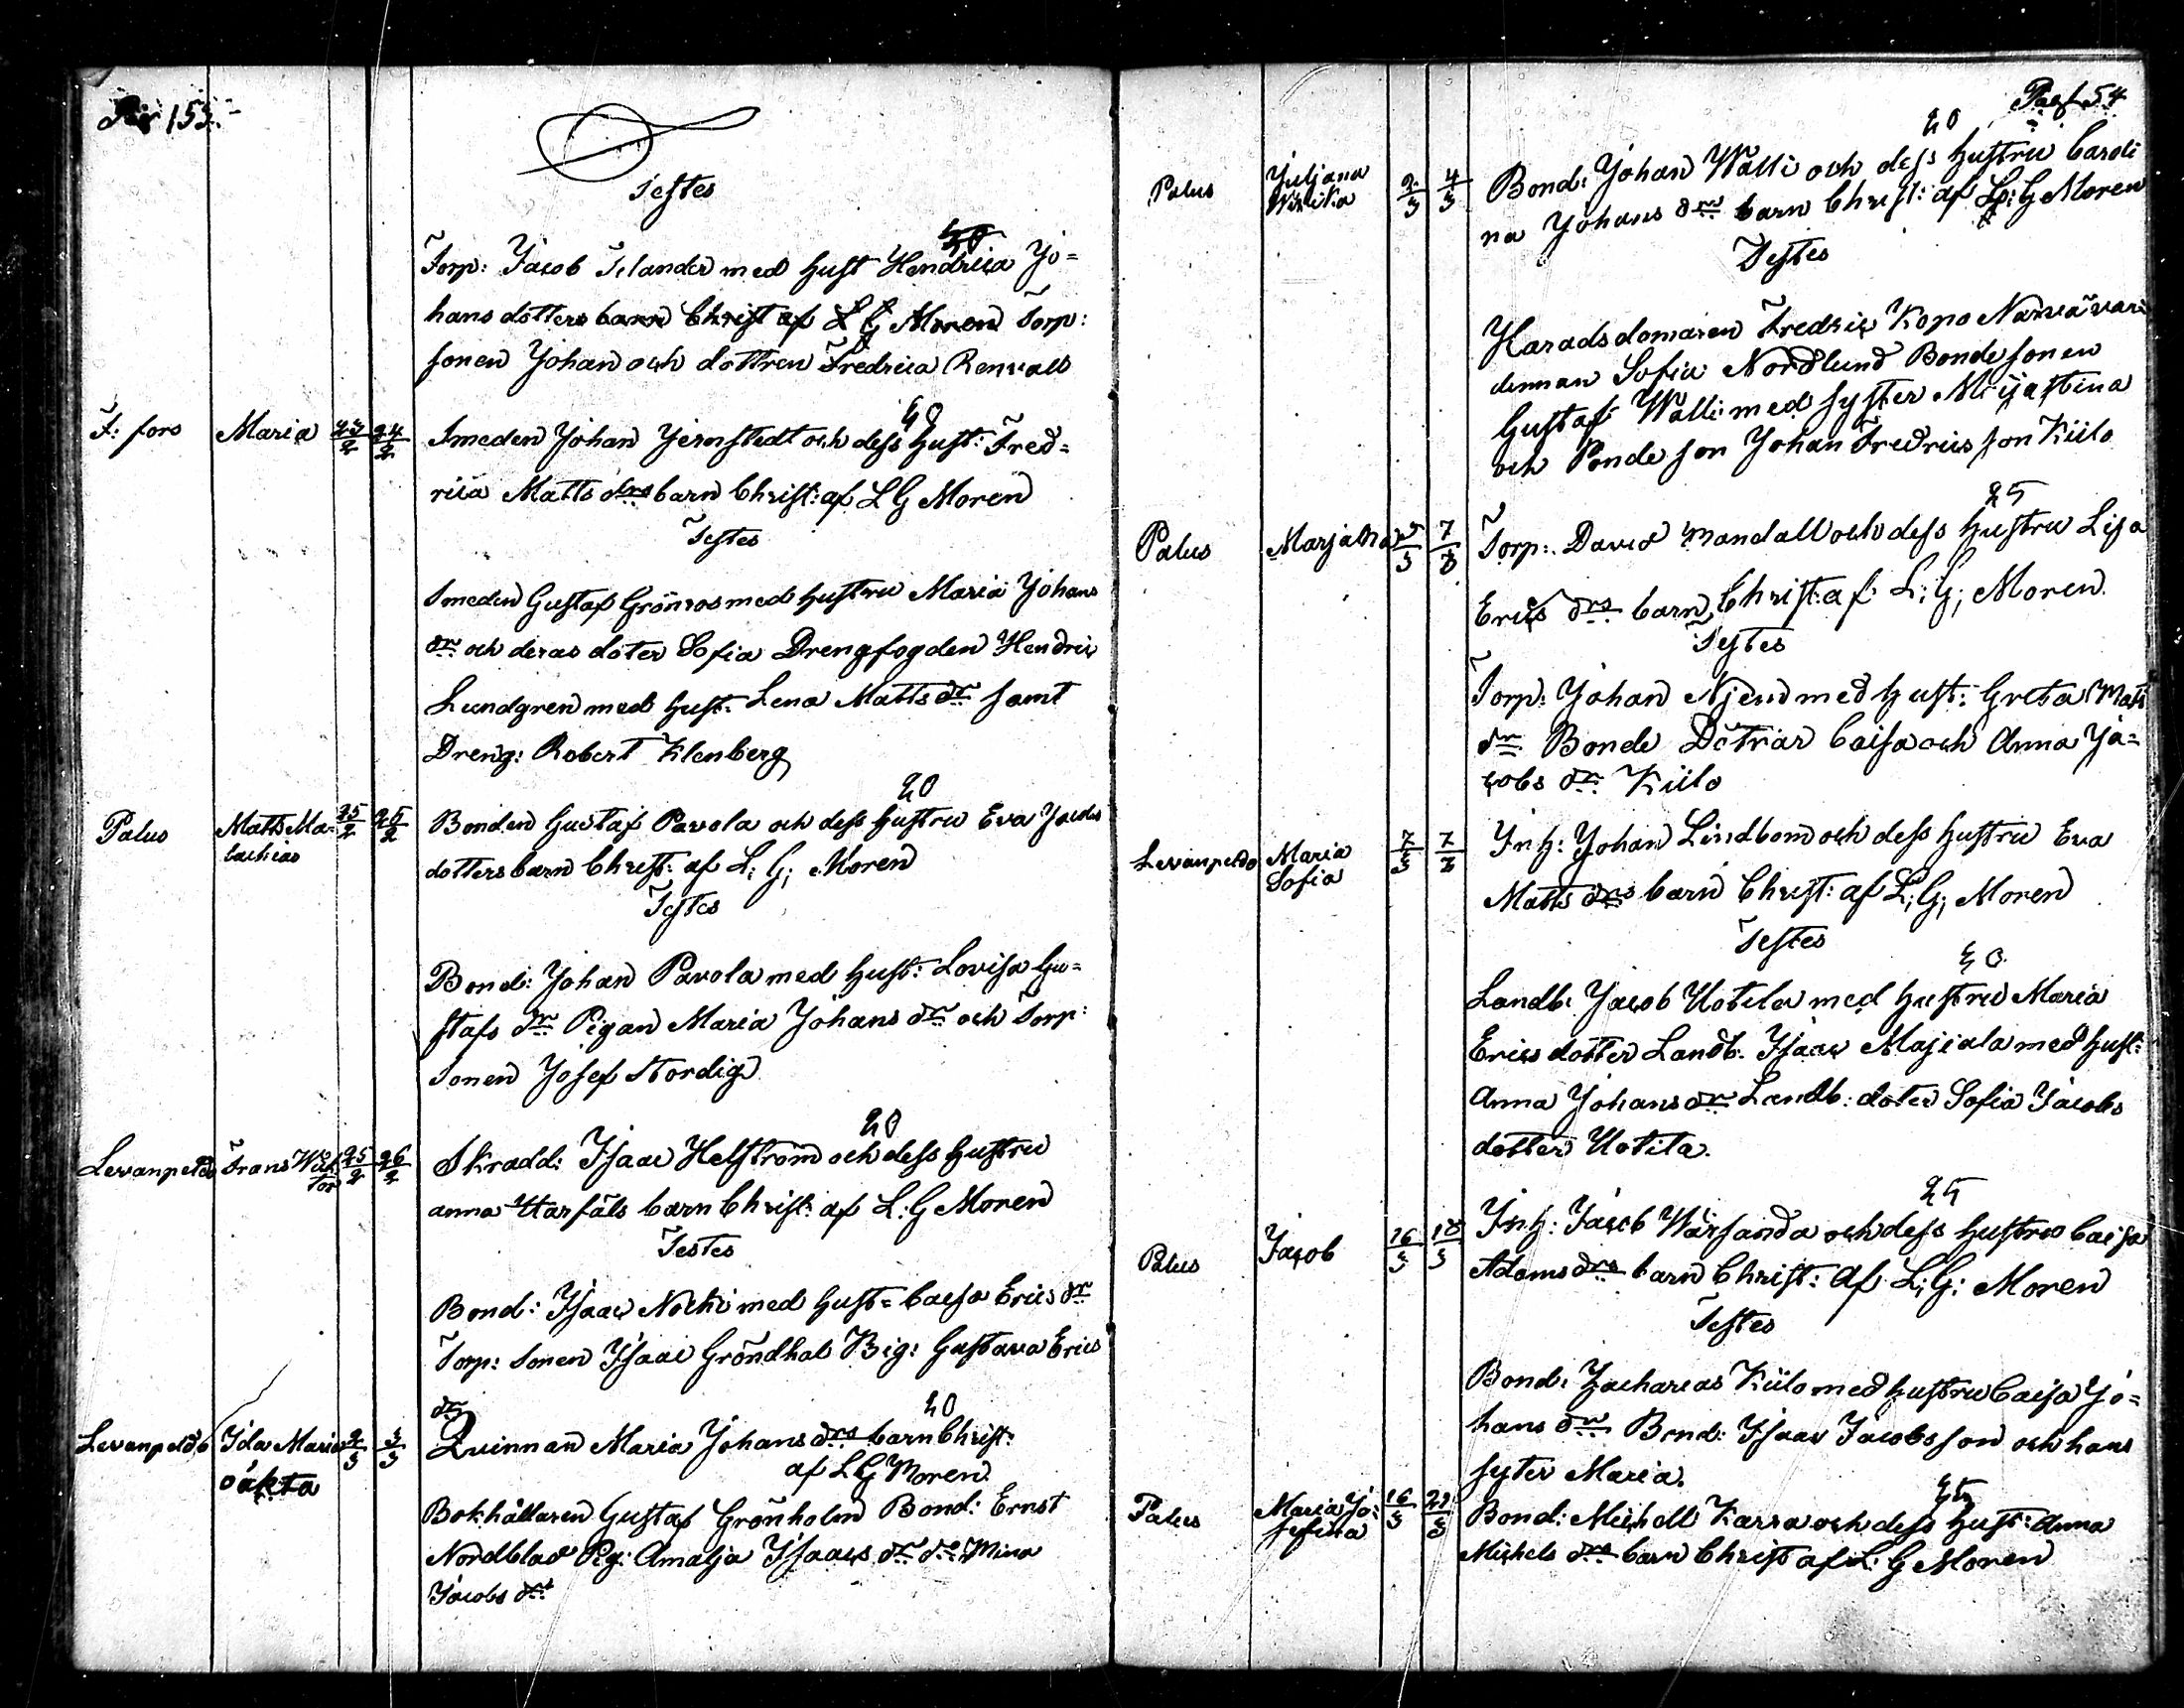 155.
Testes
Torp: Jacob Telander med hust Hendrica Jo=
hans dotters barn Christ af L G Moren Torp:
sonen Johan och dottren Fredrica Renvall
T: fors Maria 23/2 24/2
40
Smeden Johan Jernstedt och dess Hust: Fred=
rica Matts drs barn Christ: af L G Moren
Testes
Smeden Gustaf Grönroos med hustru Maria Johans
dr och deras doter Sofia Drengfogden Hendric
Lundgren med hust: Lena Matts dr samt
Dreng: Robert Klenberg
Palus Matts Ma= 25/2 26/2
lachias
20
Bonden Gustaf Pavola och dess hustru Eva Jacobs
dotters barn Christ: af L: G; Moren
Testes
Bond: Johan Pavola med hust: Lovisa Gu=
stafs dr Pigan Maria Johans dr och Torp:
Sonen Josef Nordig
Levanpeldo Frans Wik 25/2 26/2
tor
20
Skradd: Isaac Helström och dess hustru
anna barn Christ: af L: G Moren
Testes
Bond: Isaac Nocki med hust= Caisa Erics dr
Torp: Sonen Isaac Gröndhal Pig: Gustava Erics
dr
Levanpeldo Ida Maria 2/3 3/3
oäkta
20
Qvinnan Maria Johans drs barn Christ:
af L G Moren
Bokhållaren Gustaf Grönholm Bond: Ernst
Nordblad Pig: Amalja Isaacs dr do Mina
Jacobs dr
54
Palus Juljana 2/3 4/3
Wilika
20
Bond: Johan Wälli och dess hustru Caroli
na Johans drs barn Christ: af L: G Moren
Testes
Haradsdomaren Fredric Kopo
denman Sofia Nordlund Bondesonen
Gustaf Walli med syster Majastina
och Ponde son Johan Fredrics son Kiilo
Palus Marjana 5/3 7/3
25
Torp: David Mandall och dess hustru Lisa
Erics drs barn Christ: af L: G; Moren.
Testes
Torp: Johan Njend med hust: Greta Mats
dr Bonde Dötrar Caisa och Anna Ja=
cobs dr Kiilo
Levanpeldo Maria 7/3 7/3
Sofia
Inh: Johan Lindbom och dess hustru Eva
Matts drs barn Christ: af L; G; Moren
Testes
40
Landb: Jacob Uotila med hustru Maria
Erics dotter Landb: Isaac Majiala med hust:
Anna Johans dr Landb: doter Sofia Jacobs
dotter Uotila.
Palus Jacob 16/3 18/3
25
Inh: Jacob Wärsanda och dess hustru Caisa
Adams drs barn Christ: Af L; G: Moren
Testes
Bond: Zacharias Kiilo med hustru Caisa Jo=
hans dr Bond: Isaac Jacobs son och hans
syter Maria.
Palus Maria Jo= 16/3 21/3
sefina
Bond: Michell Karra och dess hust: Anna
Michels drs barn Christ af L: G Moren